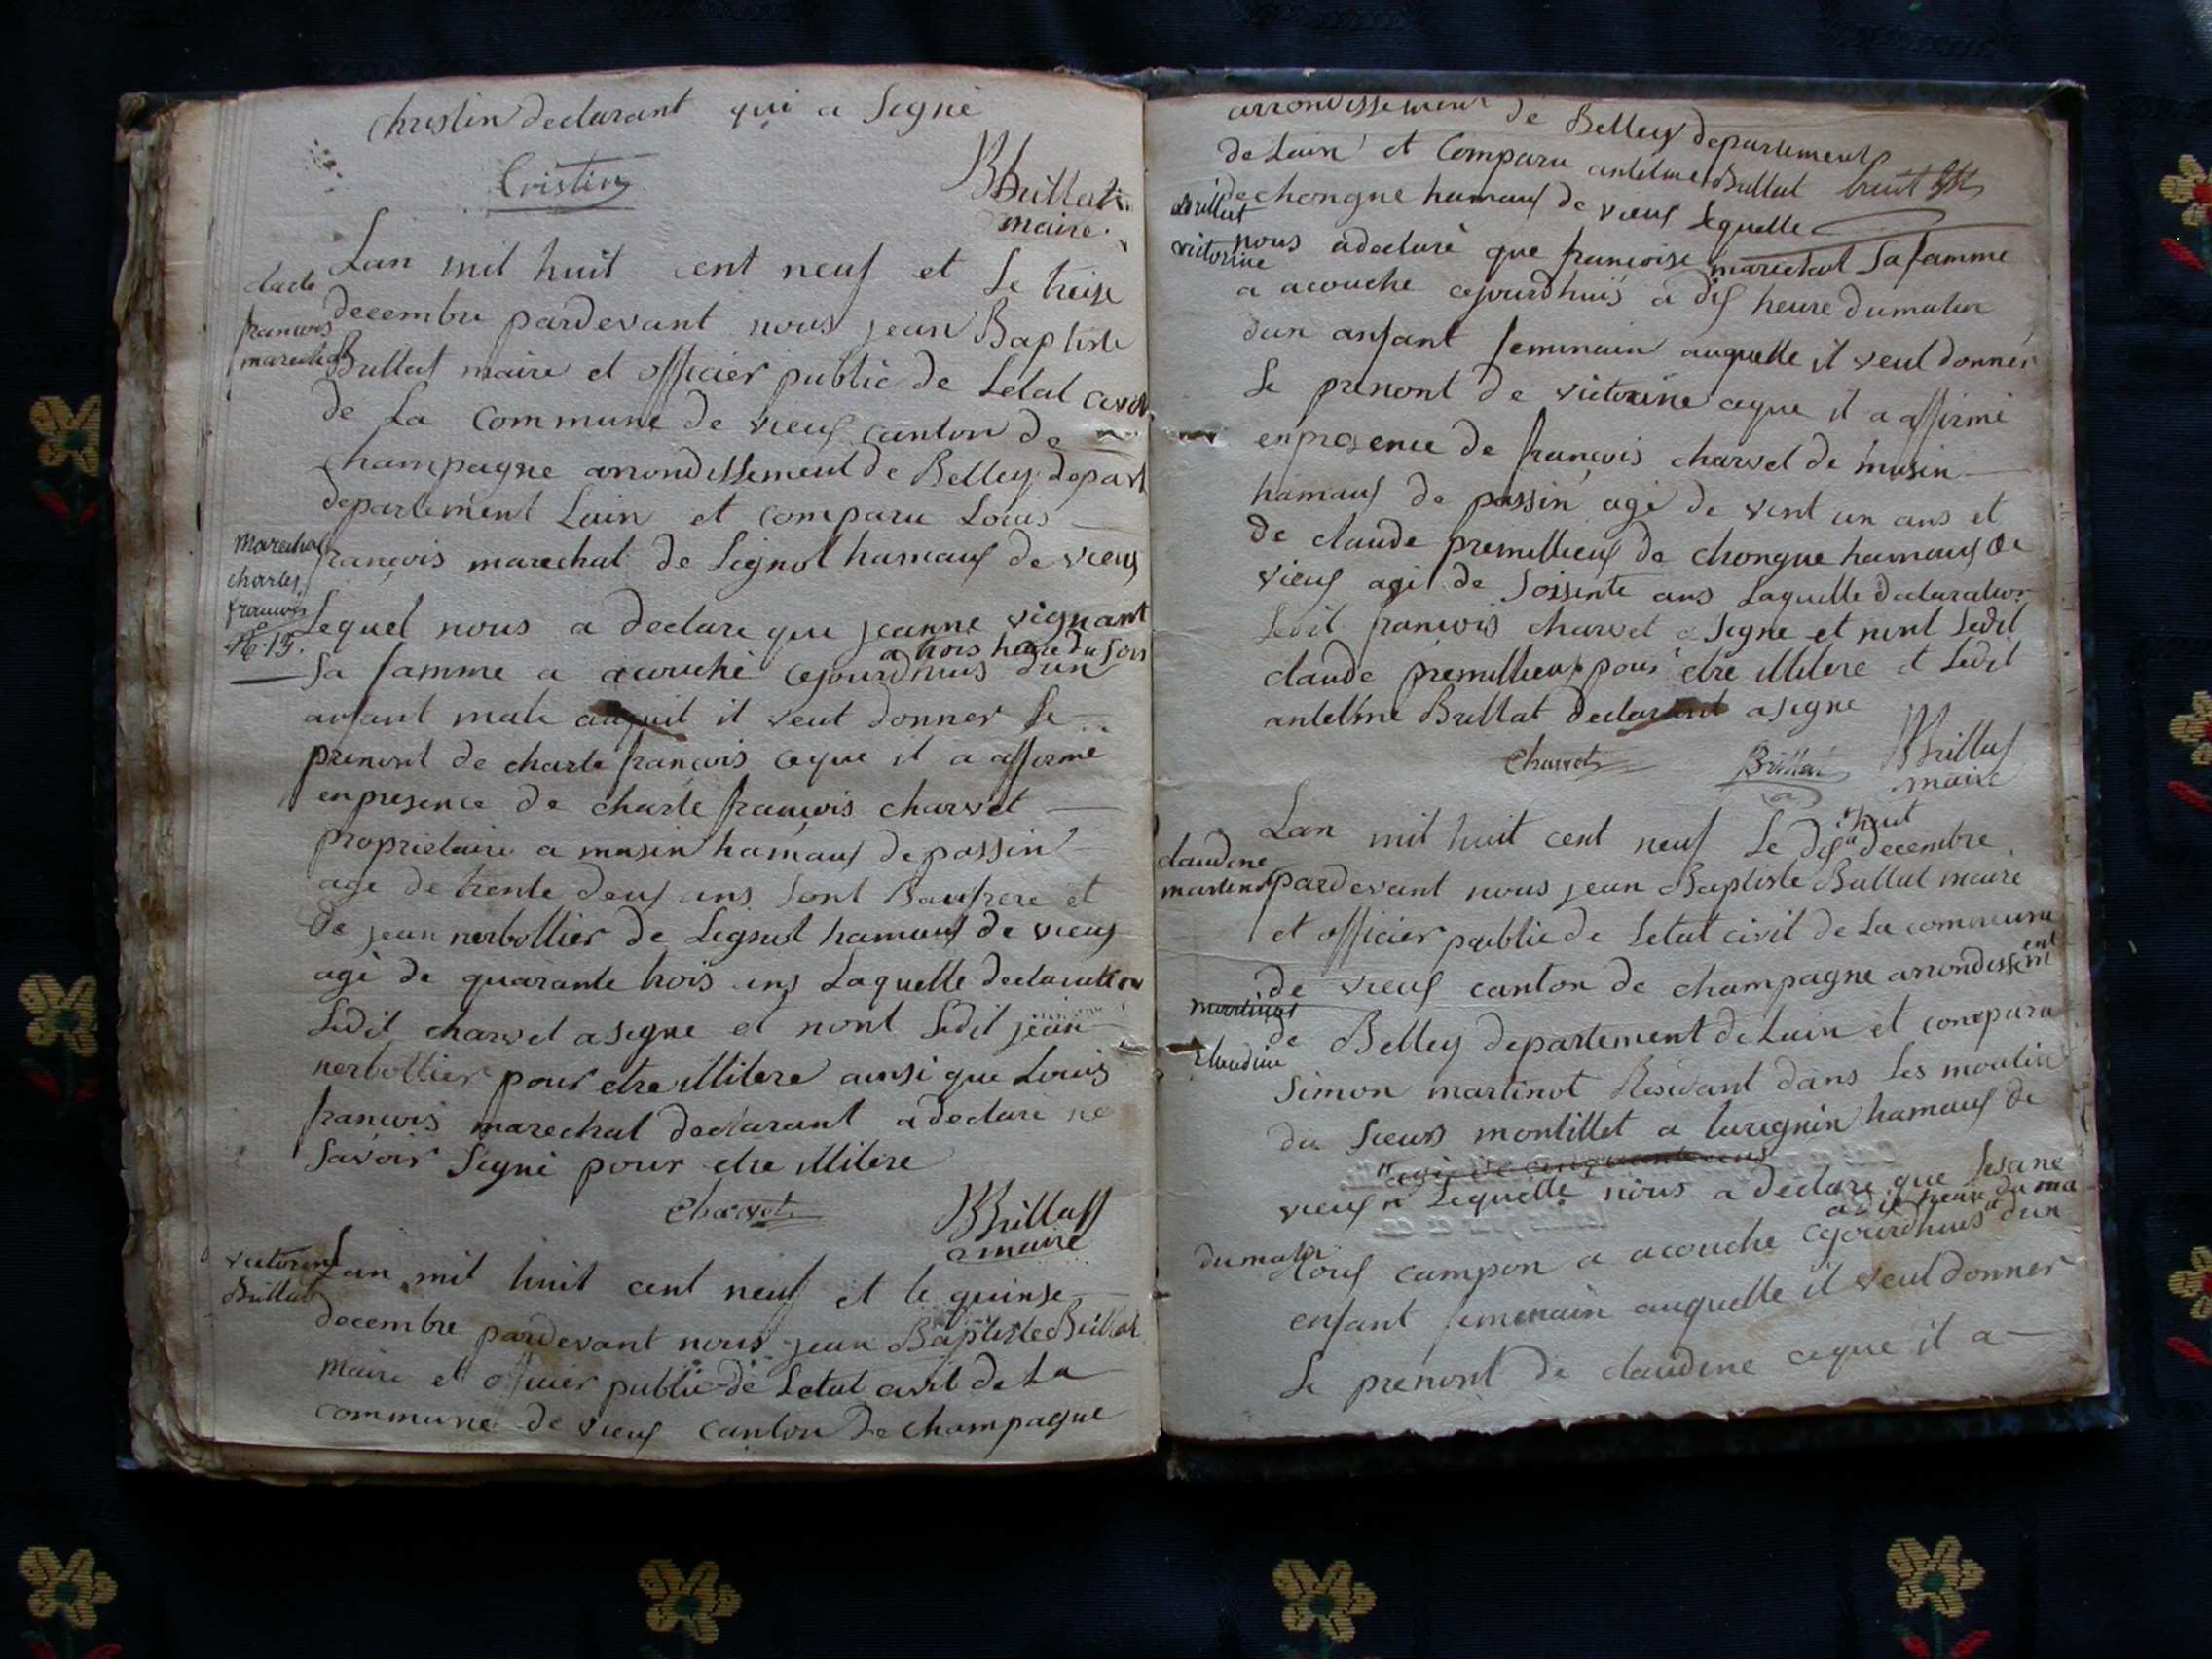 christin declarant qui a Signé
Cristin
JBBrillat
maire
Lan mil huit cent neuf et Le treise
charle
decembre pardevant nous jean Baptiste
francois
marechal
Brillat maire et officier public de Letat civil
de La Commune de vieux canton de
champagne arrondissement de Belley depart
departement Lain et comparu Louis
françois marechal de Lignol hamaux de vieux
marechal
charles
francois
N° 15.
Lequel nous a declare que jeanne vignant
a trois heure du soir
sa famme a acouché cejourdhuis dun
anfant male auquil il veut donner Le
prenont de charle françois ceque il a affirmé
enpresence de charle francois charvet
proprietaire a musin hamaux de passin
agé de trente deux ans sont Baufrere et
de jean nerbollier de Lignol hamaux de vieux
agé de quarante trois ans Laquelle declaration
Ledit charvet a segné et nont Ledit jean
nerbollier pour etre illitere ainsi que Louis
francois marechal declarant a declaré ne
savoir Segné pour etre illitere
Charvet
JBBrillat
maire
victorine
Brillat
Lan mil huit cent neuf et le quinse
decembre pardevant nous jean Baptiste Brillat
maire et officier public de Letat civil de La
commune de vieux canton de champagne
arrondissement de Belley departement
de Lain et Comparu antelme Brillat
de chongne hamaux de vieux Lequelle
Brillat
victorine
nous a declaré que francoise marechal Sa famme
a acouche cejourdhuis a dix heure dumatin
dun anfant feminain auquelle il veut donner
Le prenont de victorine ceque il a affirmé
enpresence de françois charvet de musin
hamaux de passin agé de vint un ans et
de claude premillieux de chongne hamaux de
vieux agé de soissente ans Laquelle declaration
Ledit francois charvet a Segne et nont Ledit
claude premillieux pour etre illitere et Ledit
antelme Brillat declarant a segne
Charvet
Brillat
JBBrillat
maire
huit
Lan mil huit cent neuf Le dix decembre
claudine
martinot
pardevant nous jean Baptiste Brillat maire
et officier public de Letat civil de La commune
de vieux canton de champagne arrondissement
martinot
claudine
de Belley departement de Lain et comparu
Simon martinot Residant dans Les moulin
du sieurs montillet a lurignin hamaux de
agé de cinquante ans
vieux Lequelle nous a declare que susane
a dix heure du ma
dumatin
campon a acouche cejourdhuis dun
enfant feminain auquelle il veut donner
Le prenont de claudine ceque il a